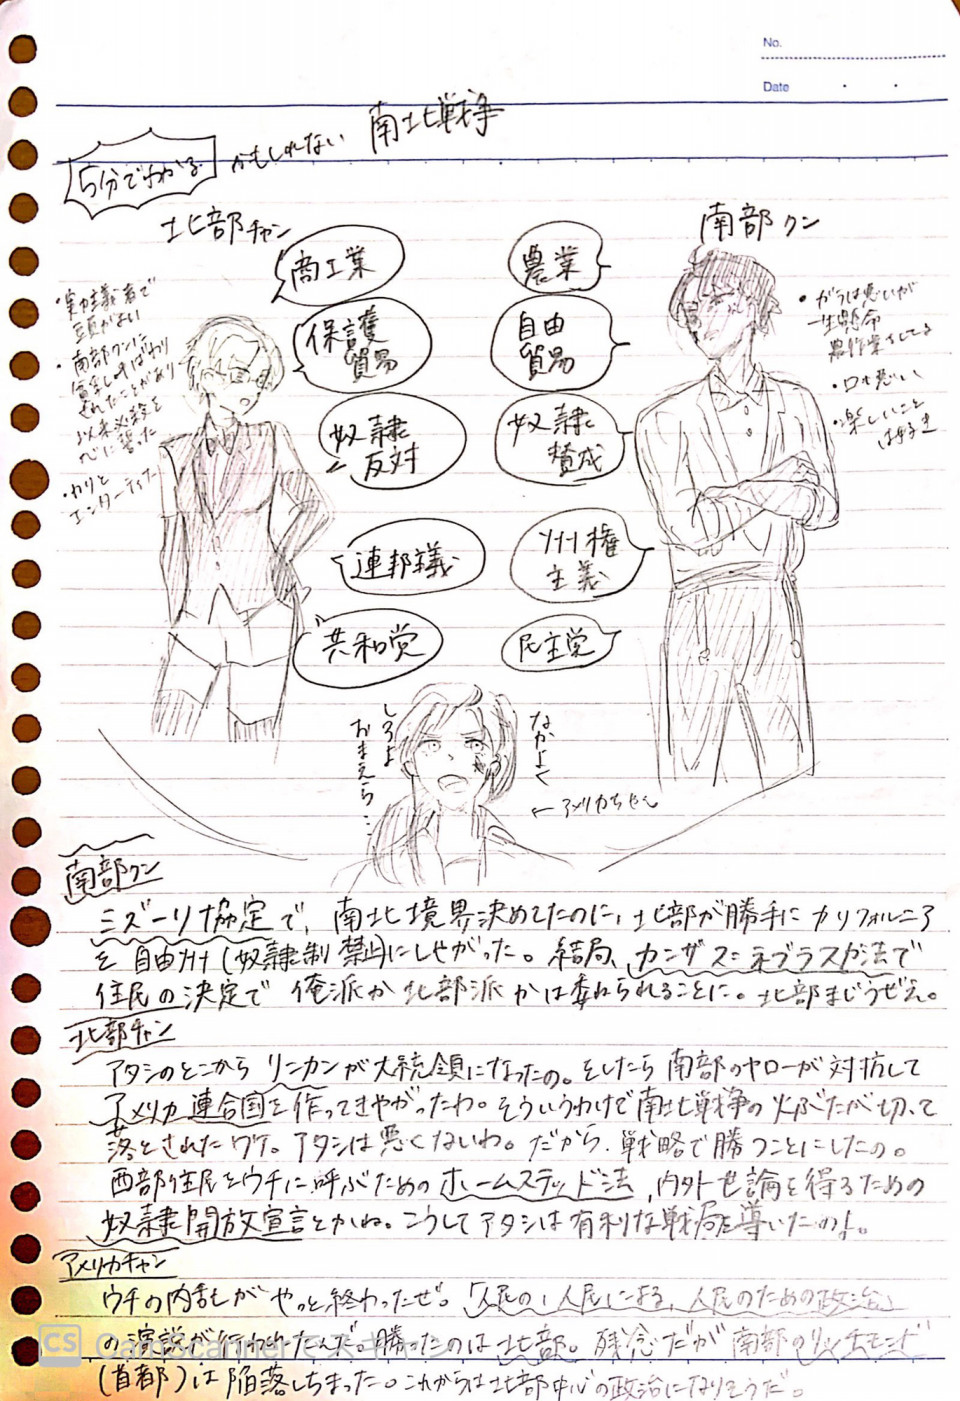 No.
Date
5分でわかる かもしれない 南北戦争
北部チャン
南部クン
商工業
農業
保護
貿易
自由
貿易
奴隷
反対
奴隷
賛成
連邦議
州権
主義
共和党
民主党
・実力主義者で
頭がよい
・南部クンに
呼ばわり
されたことがあり
以来必ず
心に誓った
・わりと
・ガラは悪いが
一生懸命
農作業してる
・口も悪い
・楽しいこと
は好き
なかよく
しろよ
おまえら…
←アメリカちゃん
南部クン
ミズーリ協定で、南北境界決めてたのに、北部が勝手にカリフォルニア
を自由州(奴隷制禁止)にしやがった。結局、カンザス=ネブラスカ法で
住民の決定で 俺派か北部派かは委ねられることに。北部まじうぜえ。
北部チャン
アタシのとこからリンカンが大統領になったの。そしたら南部のヤローが対抗して
アメリカ連合国を作ってきやがったわ。そういうわけで南北戦争の火ぶたが切って
落とされたワケ。アタシは悪くないわ。だから、戦略で勝つことにしたの。
西部住民をウチに呼ぶためのホームステッド法、内外世論を得るための
奴隷開放宣言とかね。こうしてアタシは有利な戦局を導いたのよ。
アメリカチャン
ウチの内乱がやっと終わったぜ。「人民の、人民による、人民のための政治」
の演説が行われたんだ。勝ったのは北部。残念だが南部のリッチモンド
CS CamScannerでスキャン
(首都)は陥落しちまった。これからは北部中心の政治になりそうだ。